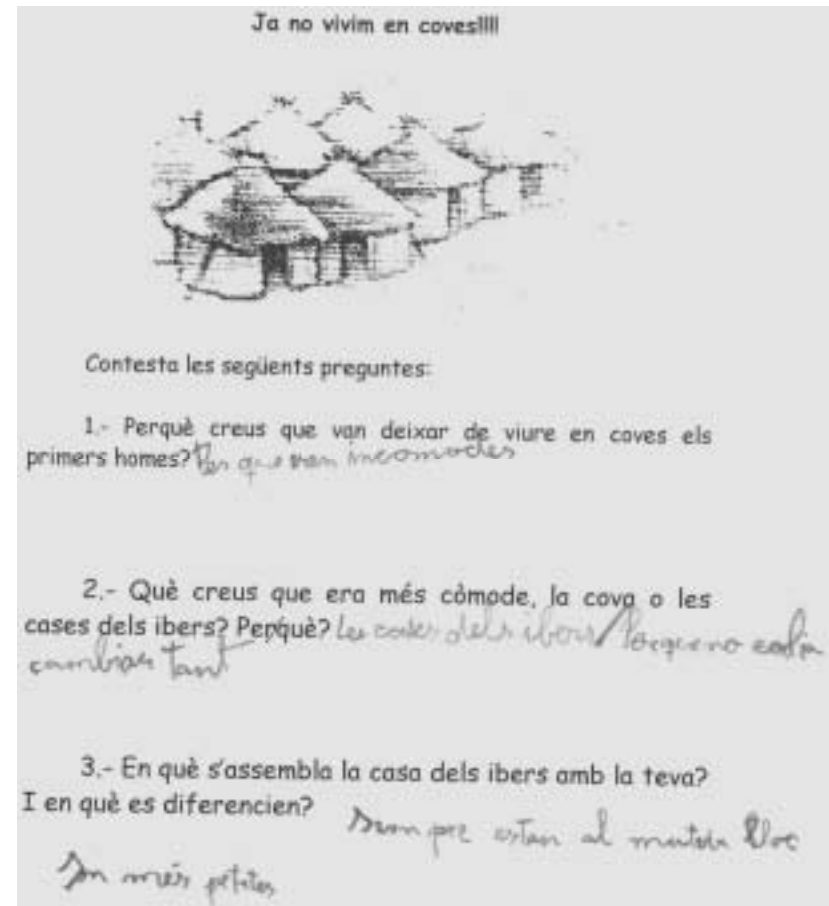 Ja no vivim en coves!!!!
Contesta les següents preguntes:
1.- Perquè creus que van deixar de viure en coves els
primers homes? Per que eren incomodes
2.- Què creus que era més còmode, la cova o les
cases dels ibers? Perquè? Les cases dels ibers Perque no calia
cambiar tant
3.- En què s'assembla la casa dels ibers amb la teva?
I en què es diferencien? Sempre estan al mateix lloc
Son més petites